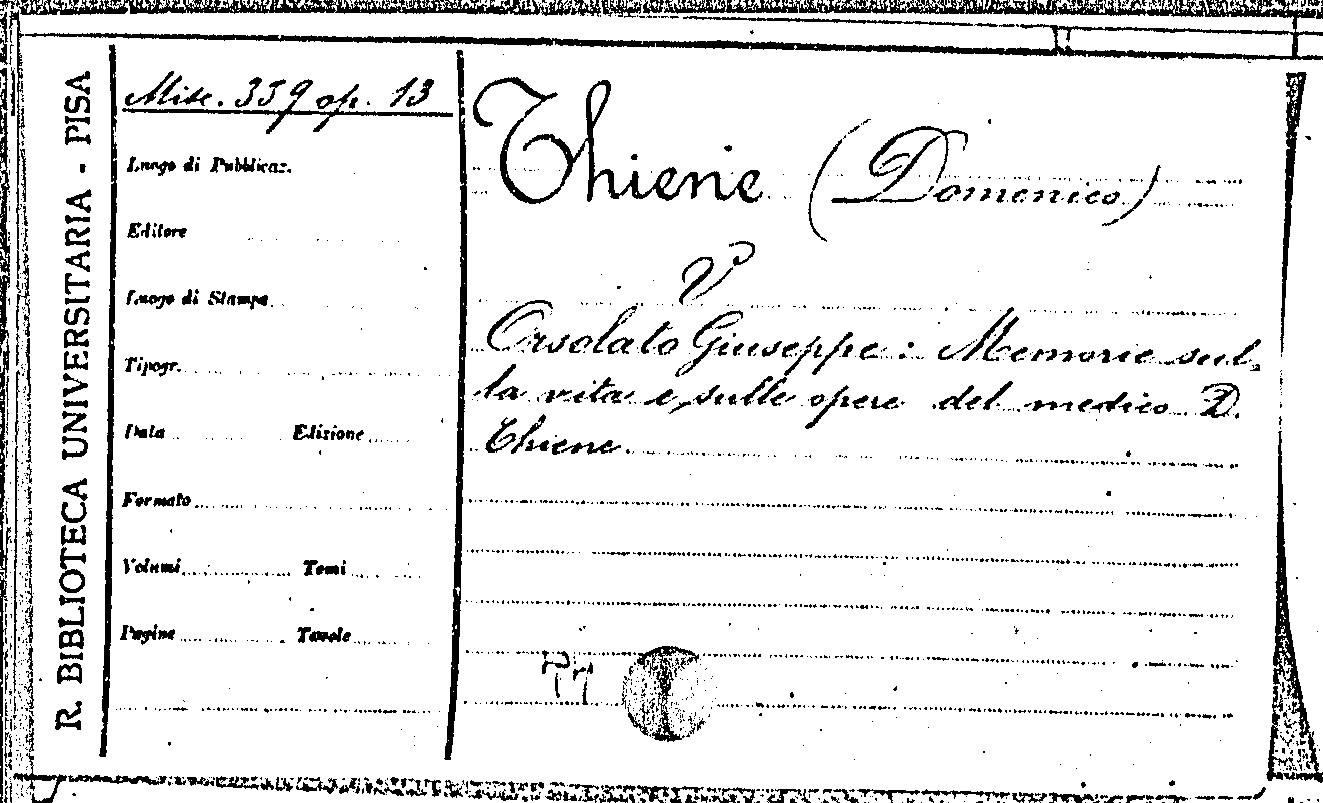 R. BIBLIOTECA UNIVERSITARIA - PISA
Misc. 359 op. 13
Luogo di Pubblicaz.
Editore
Luogo di Stampa
Tipogr.
Data Edizione
Formato
Volumi Tomi
Pagine Tavole
Thiene (Domenico)
V
Orsolato Giuseppe: Memorie sul-
la vita e sulle opere del medico D.
Thiene.